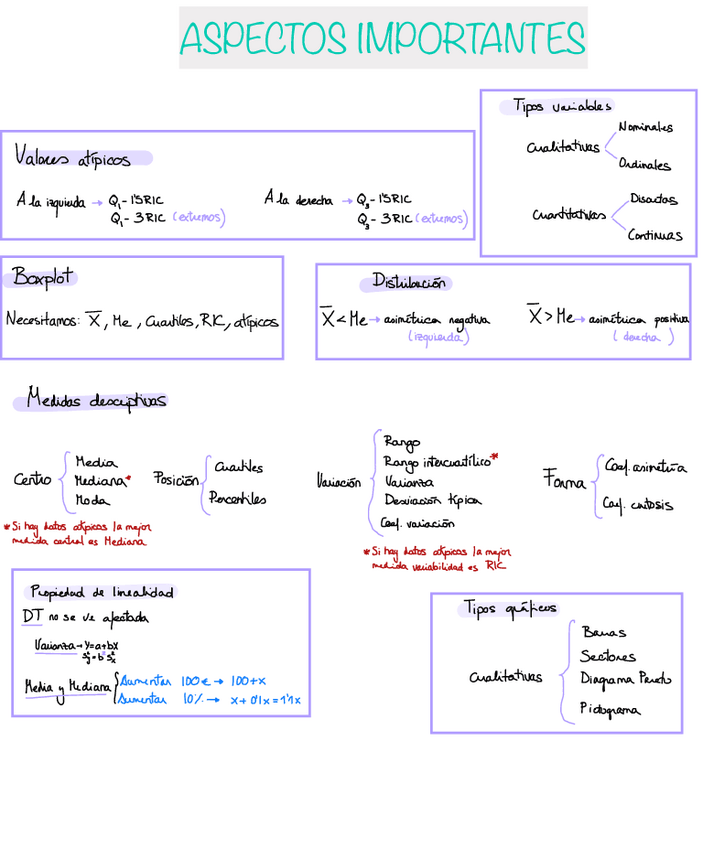 ASPECTOS IMPORTANTES
Tipos variables
Cualitativas
Nominales
Ordinales
Cuantitativas
Discretas
Continuas
Valores atípicos
A la izquierda → Q₁ - 1'5RIC
Q₁ - 3RIC (extremos)
A la derecha → Q₃ - 1'5RIC
Q₃ - 3RIC (extremos)
Boxplot
Necesitamos: X̅, Me, Cuartiles, RIC, atípicos
Distribución
X̅ < Me → asimétrica negativa
(izquierda)
X̅ > Me → asimétrica positiva
(derecha)
Medidas descriptivas
Centro
Media
Mediana*
Moda
*Si hay datos atípicos la mejor
medida central es Mediana
Posición
Cuartiles
Percentiles
Variación
Rango
Rango intercuartílico*
Varianza
Desviación típica
Coef. variación
*Si hay datos atípicos la mejor
medida variabilidad es RIC
Forma
Coef. asimetría
Coef. curtosis
Propiedad de linealidad
DT no se ve afectada
Varianza → y=a+bx
s²y = b² s²x
Media y Mediana
Aumentar 100€ → 100+x
Aumentar 10% → x+0'1x = 1'1x
Tipos gráficos
Cualitativas
Barras
Sectores
Diagrama Pareto
Pictograma